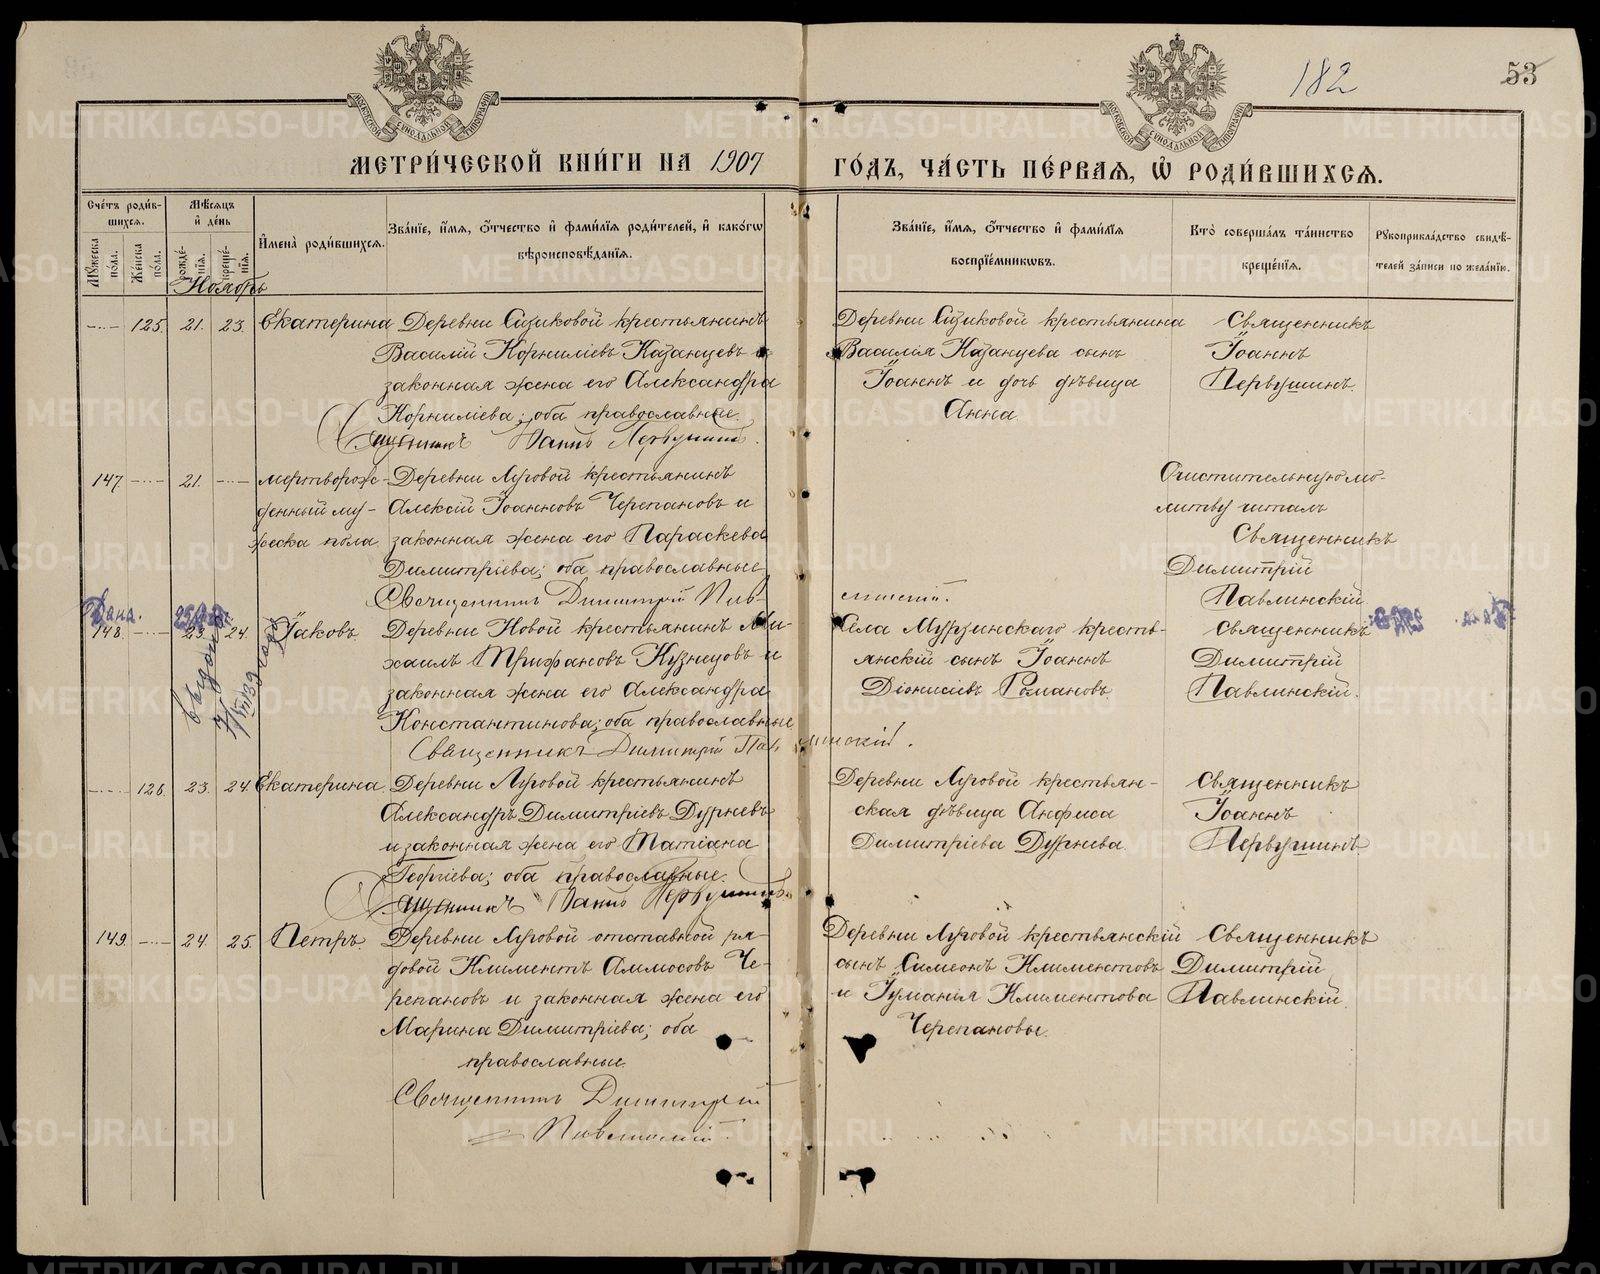 182
53
МОСКОВСКОЙ СИНОДАЛЬНОЙ ТИПОГРАФІИ
МОСКОВСКОЙ СИНОДАЛЬНОЙ ТИПОГРАФІИ
МЕТРИ́ЧЕСКОЙ КНИ́ГИ НА 1907 ГО́ДЪ, ЧА́СТЬ ПЕ́РВАѦ, Ѡ҆ РОДИ́ВШИХСѦ.
Сче́тъ роди́в-
шихсѧ.
Мꙋ́жеска по́ла.
Же́нска по́ла.
Мѣ́сѧцъ
и҆ де́нь
рожде́-
нїѧ.
креще́-
нїѧ.
И҆мена̀ роди́вшихсѧ.
Зва́нїе, и҆́мѧ, ѻ҆́тчество и҆ фами́лїѧ роди́телей, и҆ како́гѡ
вѣроисповѣ́данїѧ.
Зва́нїе, и҆́мѧ, ѻ҆́тчество и҆ фами́лїѧ
воспрїе́мникѡвъ.
Кто̀ соверша́лъ та́инство
креще́нїѧ.
Рꙋкоприкла́дство свидѣ́-
телей за́писи по жела́нїю.
Ноябрь
125. 21. 23. Екатерина
Деревни Сизиковой крестьянинъ
Василій Корниліевъ Казанцевъ и
законная жена его Александра
Корниліева; оба православные.
Священникъ Іоаннъ Первушинъ.
Деревни Сизиковой крестьянина
Василія Казанцева сынъ
Іоаннъ и дочь дѣвица
Анна.
Священникъ
Іоаннъ
Первушинъ.
147. 21. мертворож-
денный му-
жеска пола.
Деревни Луговой крестьянинъ
Алексій Іоанновъ Черепановъ и
законная жена его Параскева
Димитріева; оба православные
Священникъ Димитрій Павлинскій.
Очистительную мо-
литву читалъ
Священникъ
Димитрій
Павлинскій.
148. 23. 24. Іаковъ.
выдан
7/VII 39 года
Деревни Новой крестьянинъ Ми-
хаилъ Трифановъ Кузнецовъ и
законная жена его Александра
Константинова; оба православные
Священникъ Димитрій Павлинскій.
Села Мурзинскаго кресть-
янскій сынъ Іоаннъ
Діонисіевъ Романовъ.
Священникъ
Димитрій
Павлинскій.
126. 23. 24. Екатерина.
Деревни Луговой крестьянинъ
Александръ Димитріевъ Дурневъ
и законная жена его Татіана
Георгіева; оба православные.
Священникъ Іоаннъ Первушинъ.
Деревни Луговой крестьян-
ская дѣвица Анфиса
Димитріева Дурнева.
Священникъ
Іоаннъ
Первушинъ.
149. 24. 25. Петръ.
Деревни Луговой отставной ря-
довой Климентъ Аммосовъ Че-
репановъ и законная жена его
Марина Димитріева; оба
православные.
Священникъ Димитрій
Павлинскій.
Деревни Луговой крестьянскій
сынъ Симеонъ Климентовъ
и Іуліанія Климентова
Черепановы.
Священникъ
Димитрій
Павлинскій.
METRIKI.GASO-URAL.RU